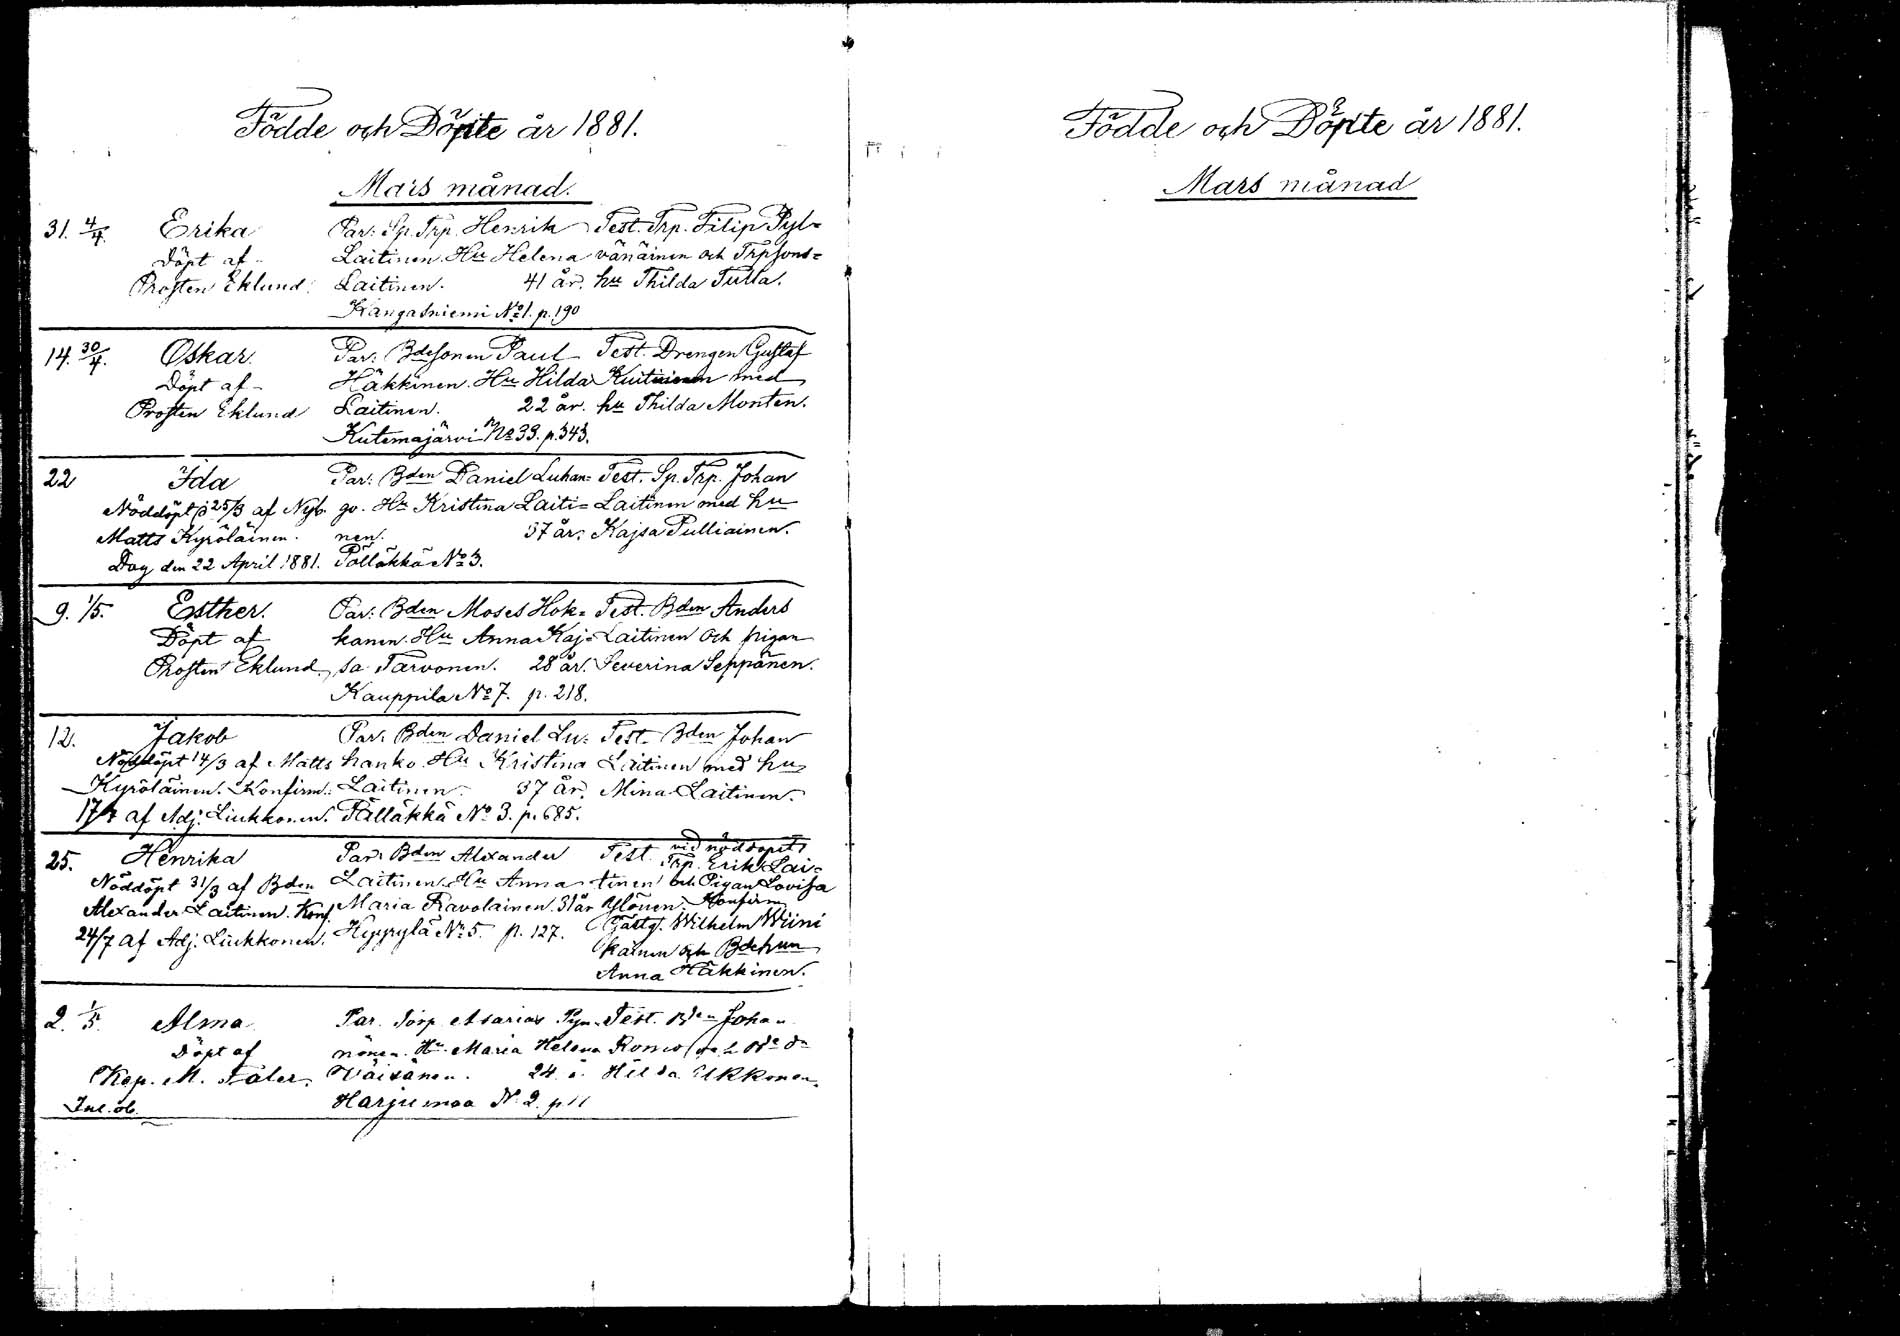 Födde och Döpte år 1881.
Mars månad.
31. 4/4. Erika Par: Sp. Trp. Henrik Test. Trp. Filip Pyl=
Döpt af Laitinen. Hu Helena vänäinen och Trpsons=
Prosten Eklund. Laitinen. 41 år. hu Thilda Tulla.
Kangasniemi No 1. p. 190
14. 30/4. Oskar. Par: Bdesonen Paul Test. Drengen Gustaf
Döpt af Häkkinen. Hu Hilda med
Prosten Eklund Laitinen. 22 år. hu Thilda Monten.
Kutemajärvi No 33. p. 343.
22 Ida Par: Bden Daniel Luhan= Test. Sp. Trp. Johan
Nöddöpt 25/3 af Nyb. go. Hu Kristina Laiti= Laitinen med hu
Matts Kyröläinen. nen. 37 år. Kajsa Pulliainen.
Dog den 22 April 1881. Pölläkkä No 3.
9. 1/5. Esther. Par: Bden Moses Hok= Test. Bden Anders
Döpt af kanen. Hu Anna Kaj= Laitinen och pigan
Prosten Eklund. sa Tarvonen. 28 år. Severina Seppänen.
Kauppila No 7. p. 218.
12. Jakob Par: Bden Daniel Lu= Test. Bden Johan
Nöddöpt 14/3 af Matts hanko. Hu Kristina Laitinen med hu
Kyröläinen. Konfirm. Laitinen. 37 år. Mina Laitinen.
af Adj. Liukkonen. Pölläkkä No 3. p. 685.
25. Henrika Par: Bden Alexander Test. vid nöddopet:
Trp. Erik Lai=
Nöddöpt 31/3 af Bden Laitinen. Hu Anna tinen och Pigan Lovisa
Alexander Laitinen. Konf. Maria Ravolainen. 31 år Ylönen. Konfirm
24/7 af Adj. Liukkonen. Hyyrylä No 5. p. 127. Gästg. Wilhelm Wiini
kainen och Bdehun
Anna Häkkinen.
2. 1/5. Alma Par. Torp. Asarias Pyn= Test. Bden Johan
Döpt af nönen. Hu Maria Helena Romo och
Kap. M. Väisänen. 24 å. Hilda Ukkonen.
Harjumaa N. 2. p 11
Födde och Döpte år 1881.
Mars månad